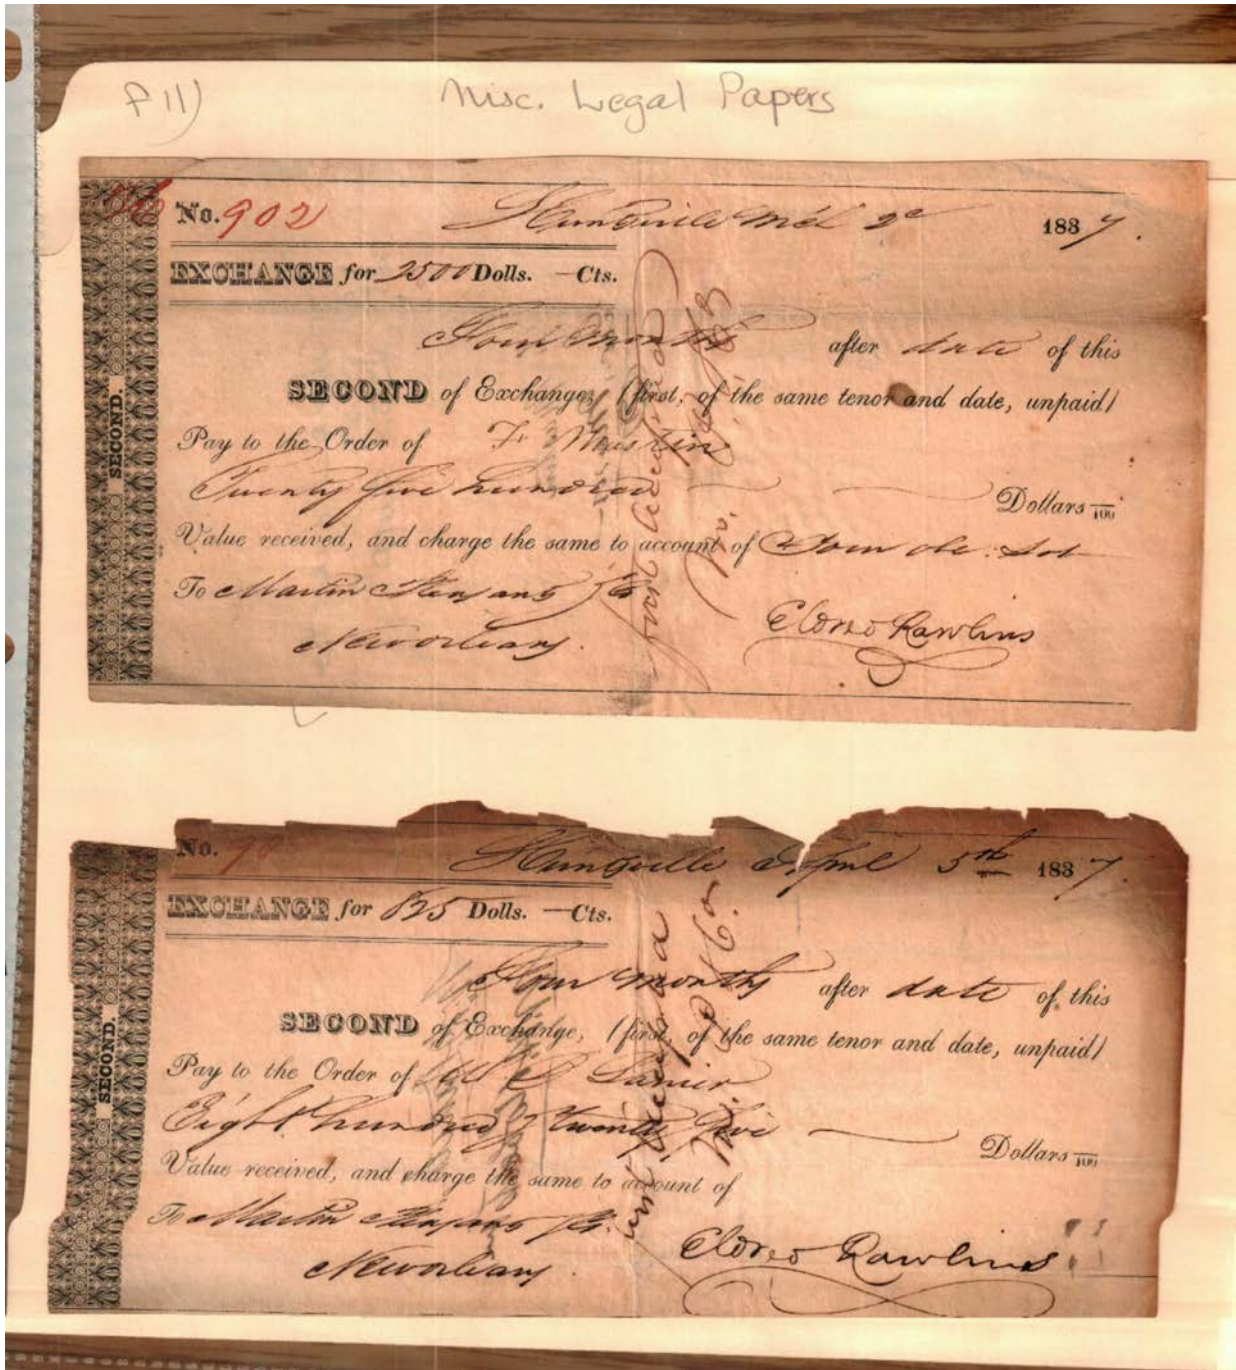 P 11)
Misc. Legal Papers
No. 902
Huntsville Mch 2d 1837.
EXCHANGE for 2500 Dolls. — Cts.
Four Months after date of this
SECOND of Exchange, (first, of the same tenor and date, unpaid)
Pay to the Order of F. Austin
Twenty five hundred Dollars /100
Value received, and charge the same to account of Your obt. Svt
To Martin & Co
Neworleans.
Rawlins
SECOND.
first accepted
No.
No.
Huntsville April 5th 1837.
EXCHANGE for 825 Dolls. — Cts.
Four months after date of this
SECOND of Exchange, (first, of the same tenor and date, unpaid)
Pay to the Order of Lanier
Eight hundred & twenty five Dollars /100
Value received, and charge the same to account of
To Martin & Co.
Neworleans.
Rawlins
SECOND.
first accepted